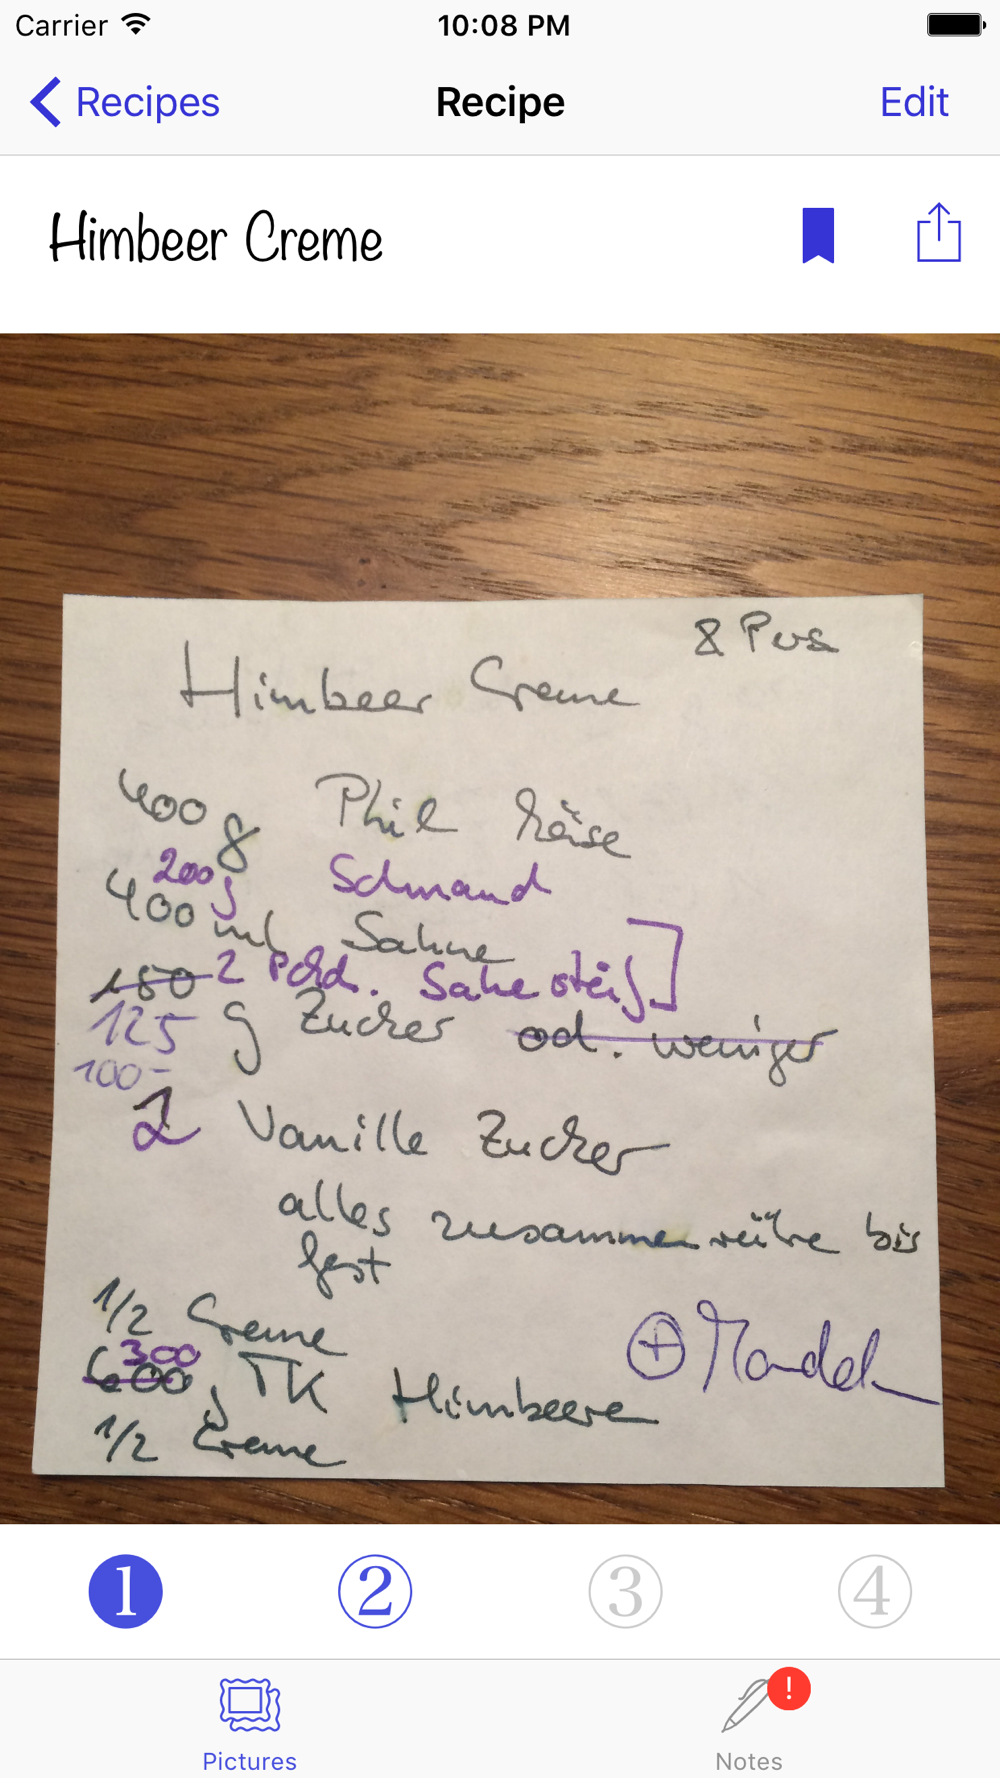 Carrier
10:08 PM
Recipes
Recipe
Edit
Himbeer Creme
8 Pers
Himbeer Creme
400 g Phil Käse
200 g Schmand
400 ml Sahne
150 2 Pckd. Sahe steif
125 g Zucker od. weniger
100-
2 Vanille Zucker
alles zusammen rühre bis
fest
1/2 Creme
⊕ Mandel
300
600 g TK Himbeere
1/2 Creme
1
2
3
4
!
Pictures
Notes